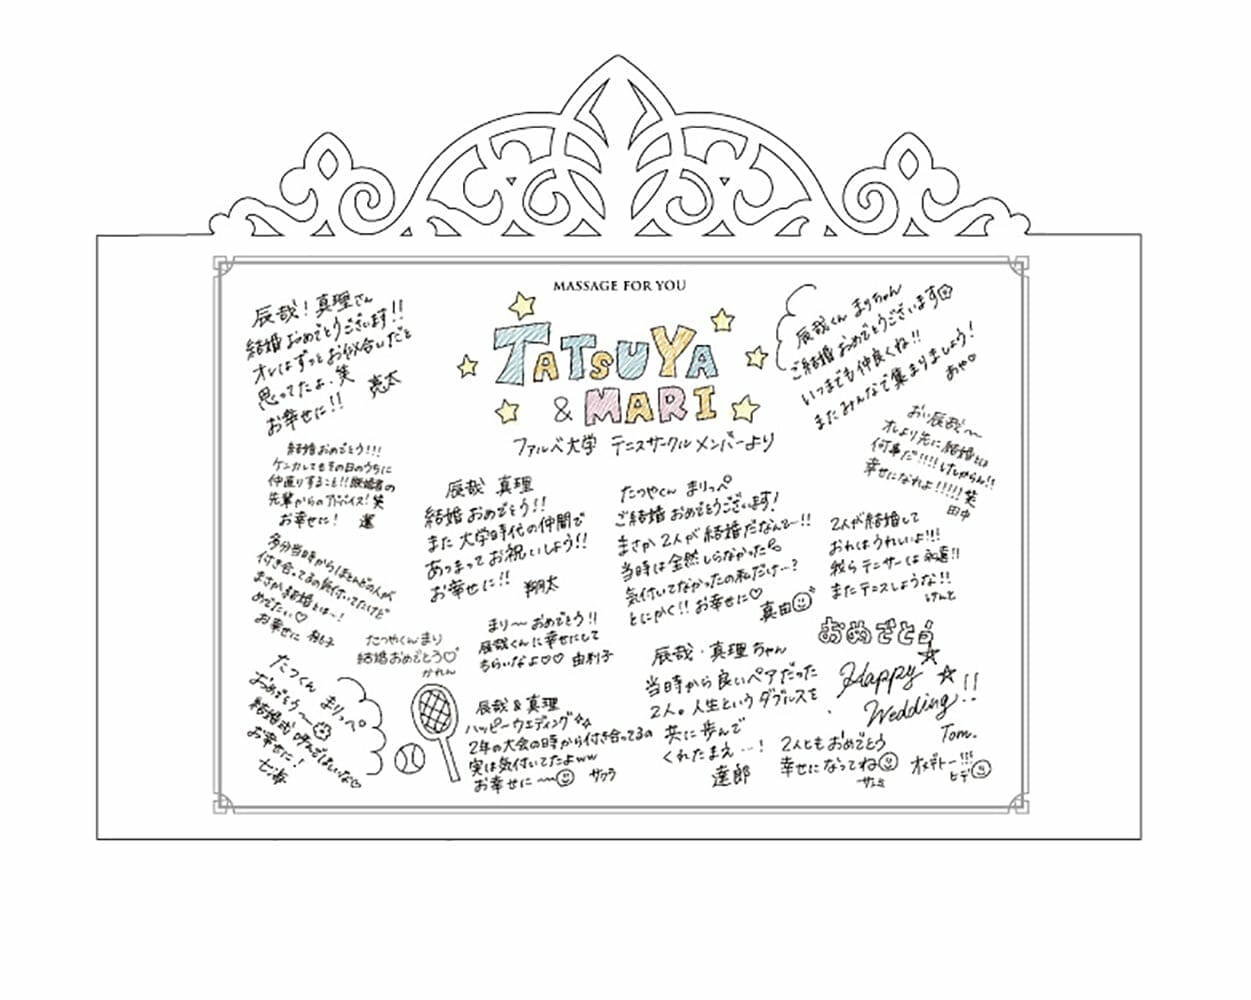 MASSAGE FOR YOU
TATSUYA
& MARI
ファルベ大学 テニスサークルメンバーより
辰哉！真理さん
結婚おめでとうございます!!
オレはずっとお似合いだと
思ってたよ.笑
お幸せに!! 亮太
結婚おめでとう!!!
ケンカしてもその日のうちに
仲直りすること!!既婚者の
先輩からのアドバイス!笑
お幸せに!
多分当時からほとんどの人が
付き合ってるの気付いてたけど
まさか結婚とは～!
めでたい♡
お幸せに
たつやくんまり
結婚おめでとう♡
かれん
たっくん まりっぺ
おめでとう～
結婚式 呼んでほしいな♡
お幸せに!
七海
辰哉 真理
結婚おめでとう!!
また大学時代の仲間で
あつまってお祝いしよう!!
お幸せに!! 翔太
まり～おめでとう!!
辰哉くんに幸せにして
もらいなよ♡♡ 由利子
辰哉&真理
ハッピーウエディング
2年の大会の時から付き合ってるの
実は気付いてたよww
お幸せに～ サクラ
たつやくん まりっぺ
ご結婚おめでとうございます!
まさか2人が結婚だなんて～!!
当時は全然しらなかった
気付いてなかったの私だけ…?
とにかく!!お幸せに♡
真由
辰哉・真理ちゃん
当時から良いペアだった
2人。人生というダブルスを
共に歩んで
くれたまえ…!
達郎
辰哉くん まりちゃん
ご結婚おめでとうございます
いつまでも仲良くね!!
またみんなで集まりましょう!
あや♡
おい辰哉～
オレより先に結婚とは
何事だ!!!!けしからん!!
幸せになれよ!!!!!笑
田中
2人が結婚して
おれはうれしいよ!!!
我らテニサーは永遠!!
またテニスしような!!
けんと
おめでとう
Happy
Wedding!!
Tom.
2人ともおめでとう
幸せになってね
サユミ
オメデトー!!!
ヒデ